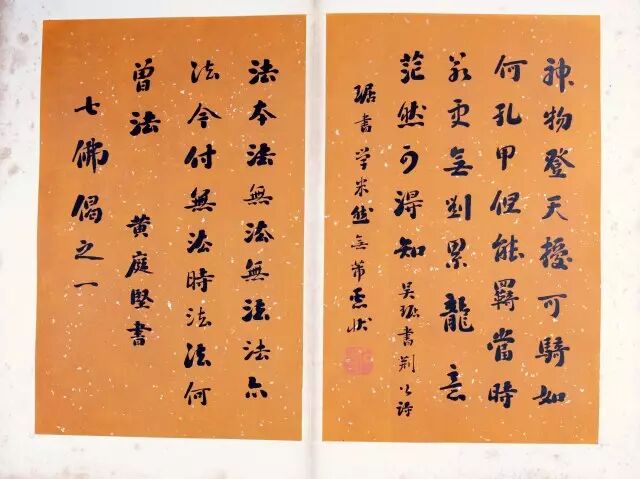 神物登天擾可騎如
何孔甲但能羈當時
若更無劉累龍意
茫然可得知
吴琚書荆公詩
琚書學米然無芾
法本法無法無法法亦
法今付無法時法法何
曾法
黄庭堅書
七佛偈之一